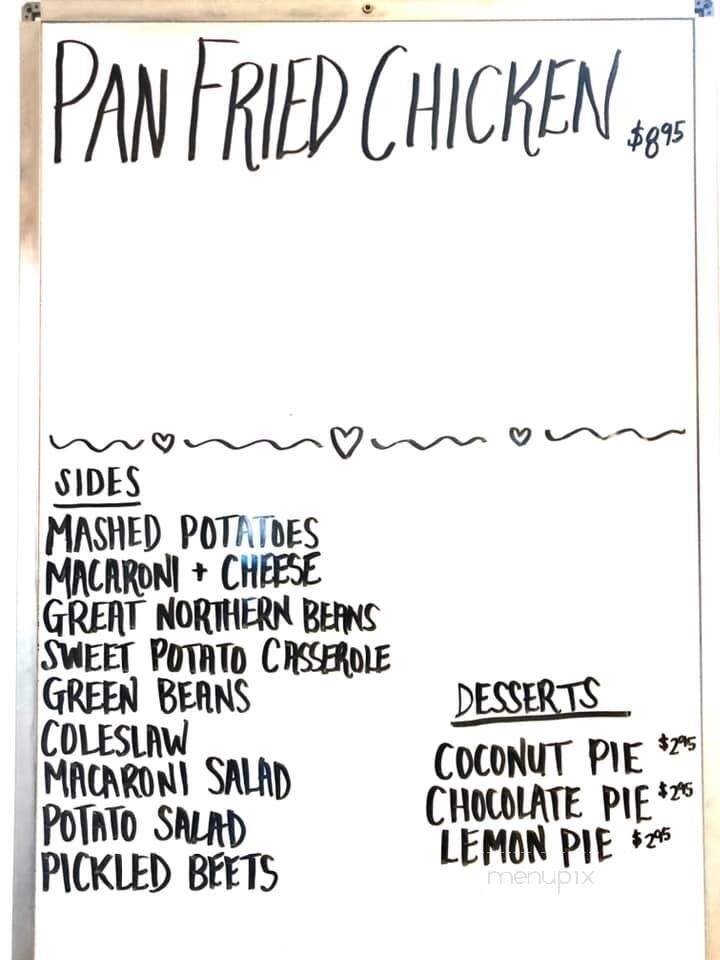 PAN FRIED CHICKEN $8.95
SIDES
MASHED POTATOES
MACARONI + CHEESE
GREAT NORTHERN BEANS
SWEET POTATO CASSEROLE
GREEN BEANS
COLESLAW
MACARONI SALAD
POTATO SALAD
PICKLED BEETS
DESSERTS
COCONUT PIE $2.95
CHOCOLATE PIE $2.95
LEMON PIE $2.95
menupix